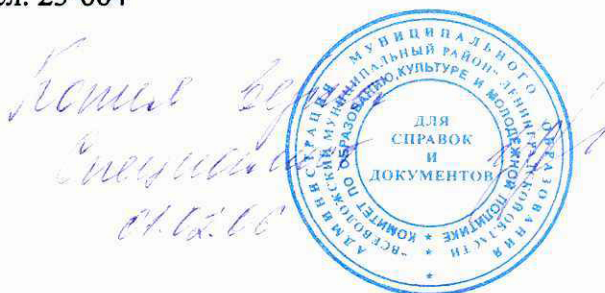 л. 25-004
Копия верна
Специалист
01.02.06
АДМИНИСТРАЦИЯ МУНИЦИПАЛЬНОГО ОБРАЗОВАНИЯ
"ВСЕВОЛОЖСКИЙ МУНИЦИПАЛЬНЫЙ РАЙОН" ЛЕНИНГРАДСКОЙ ОБЛАСТИ
КОМИТЕТ ПО ОБРАЗОВАНИЮ, КУЛЬТУРЕ И МОЛОДЕЖНОЙ ПОЛИТИКЕ
ДЛЯ
СПРАВОК
И
ДОКУМЕНТОВ